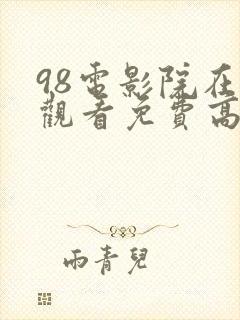 98電影院在
觀看免費高
雨青兒